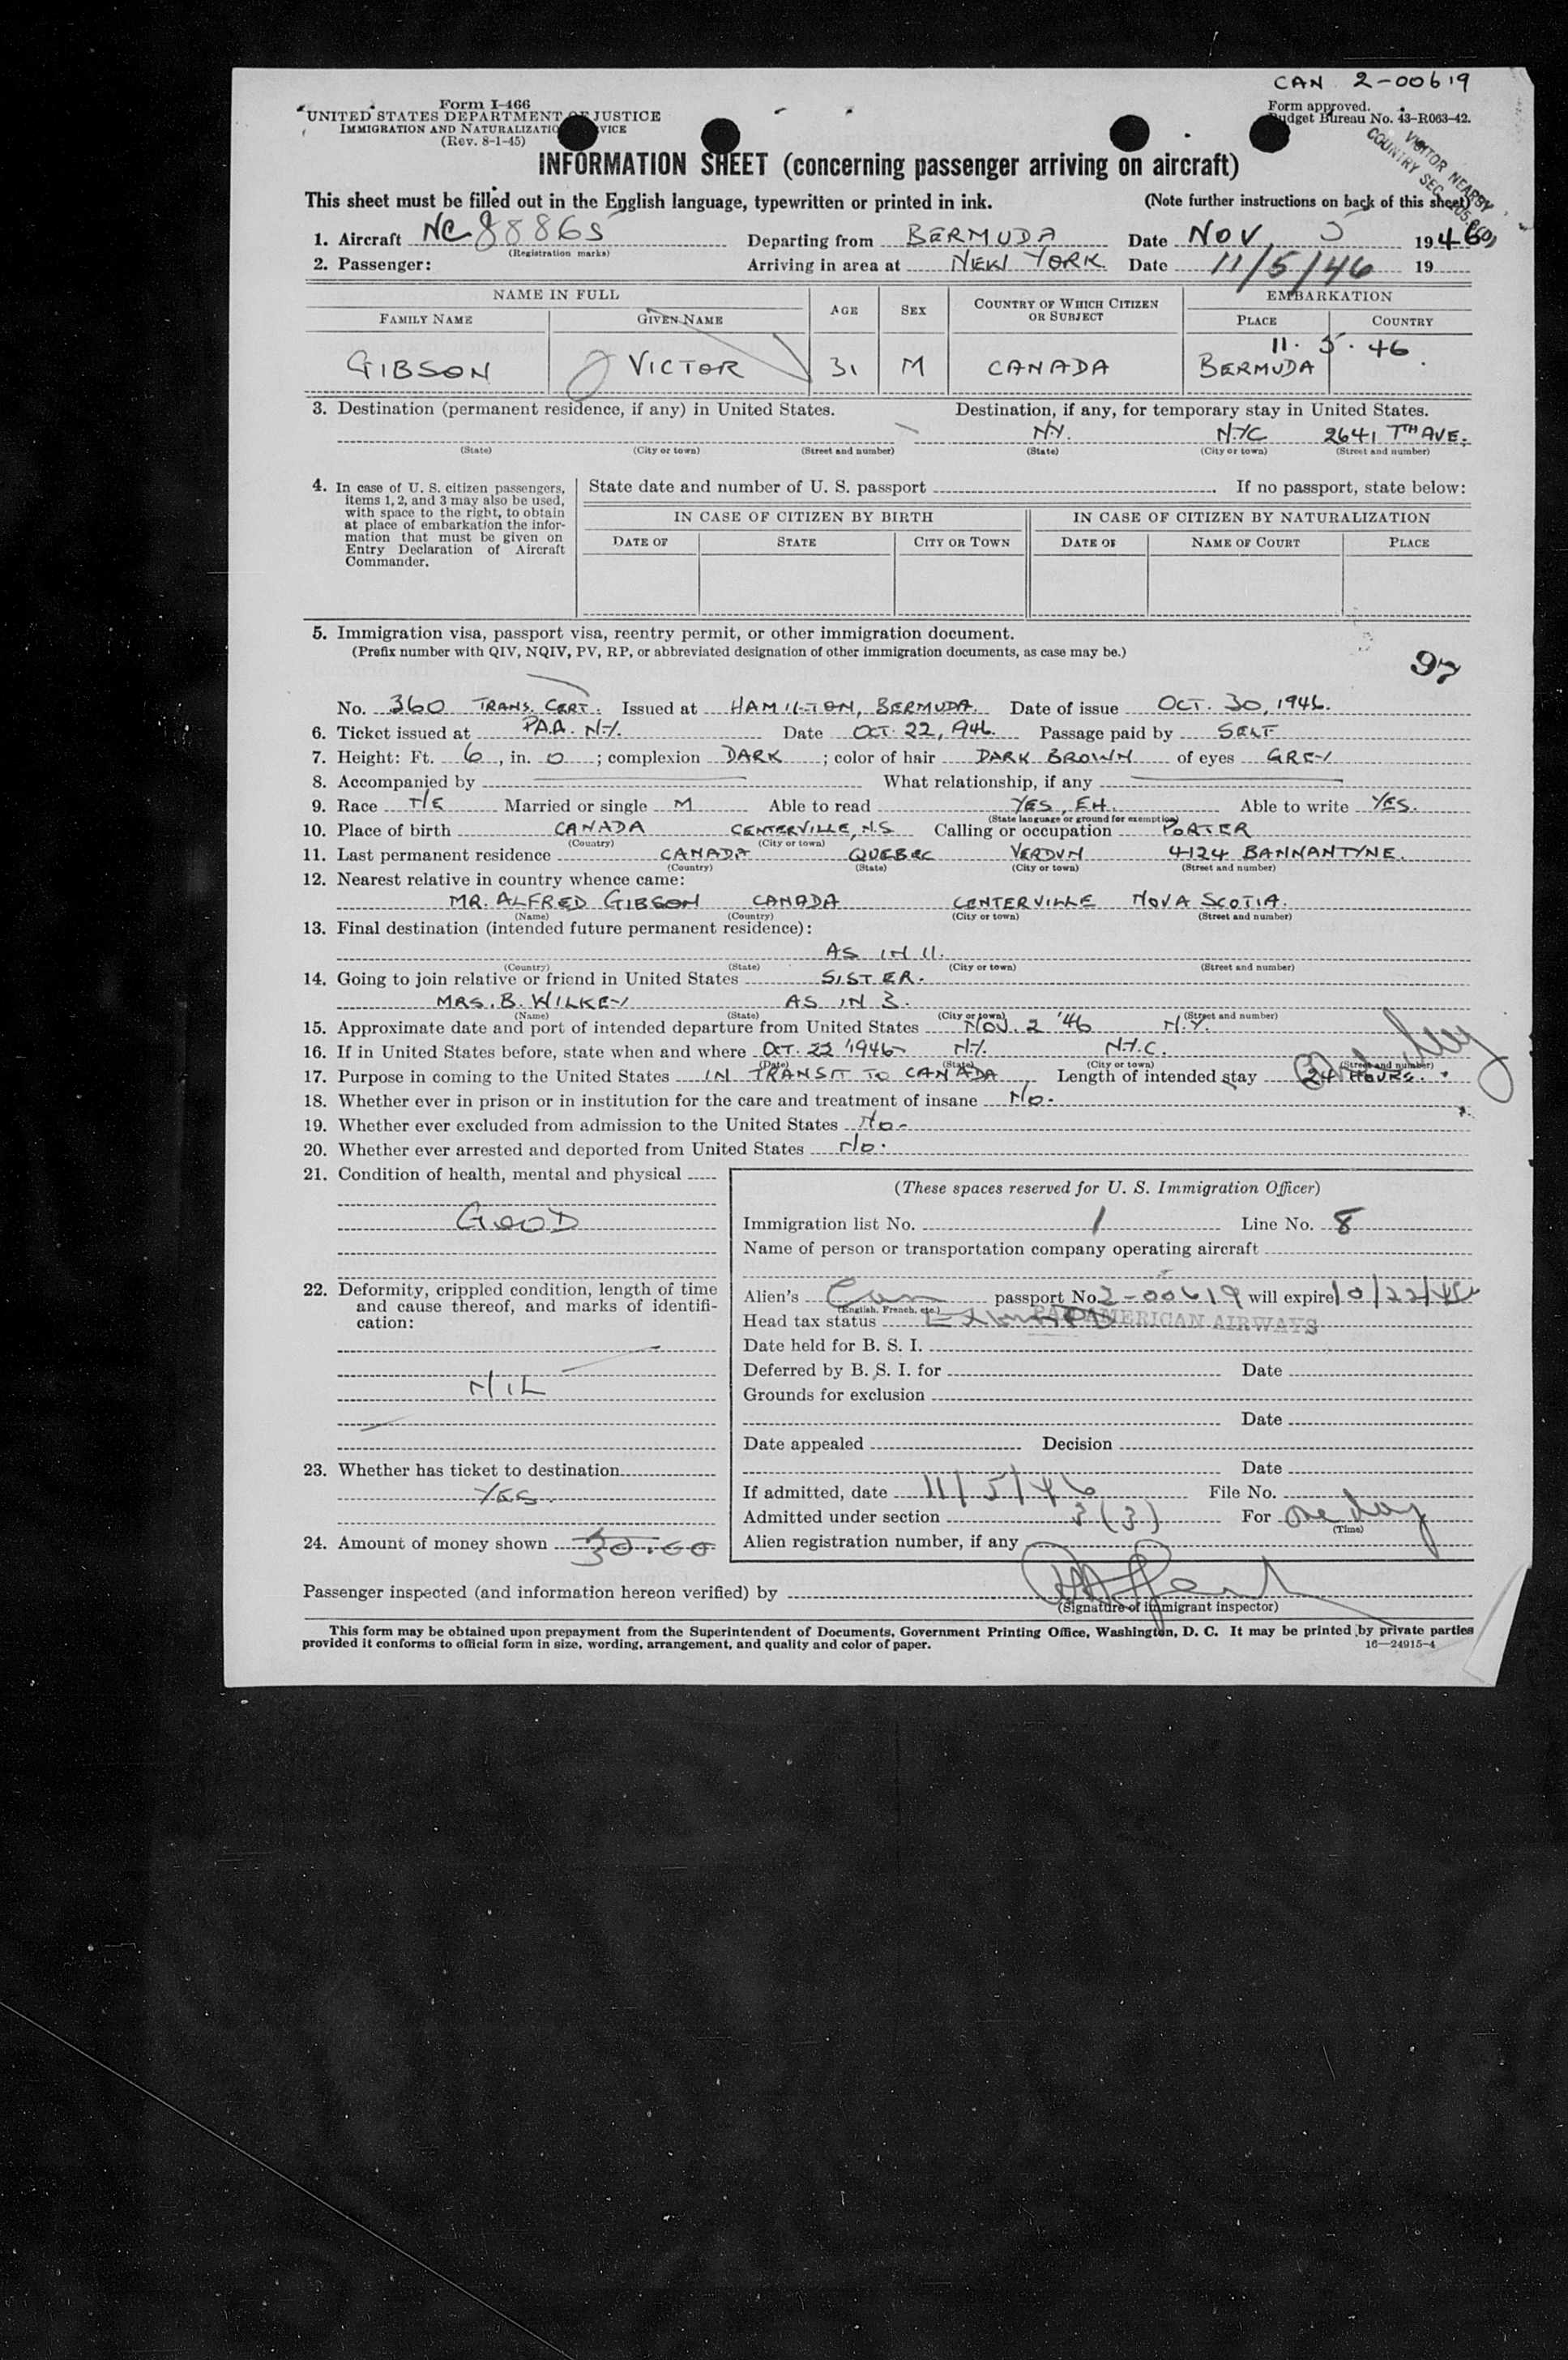 CAN 2-00619
Form I-466
UNITED STATES DEPARTMENT OF JUSTICE
IMMIGRATION AND NATURALIZATION SERVICE
(Rev. 8-1-45)
Form approved.
Budget Bureau No. 43-R063-42.
VISITOR NEARBY
COUNTRY SEC.
INFORMATION SHEET (concerning passenger arriving on aircraft)
This sheet must be filled out in the English language, typewritten or printed in ink. (Note further instructions on back of this sheet)
1. Aircraft NC 88865 Departing from BERMUDA Date NOV, 5 1946
(Registration marks)
2. Passenger: Arriving in area at NEW YORK Date 11/5/46 19
NAME IN FULL AGE SEX COUNTRY OF WHICH CITIZEN OR SUBJECT EMBARKATION
FAMILY NAME GIVEN NAME PLACE COUNTRY
11. 5. 46
GIBSON VICTOR 31 M CANADA BERMUDA
3. Destination (permanent residence, if any) in United States. Destination, if any, for temporary stay in United States.
N.Y. NYC 2641 7TH AVE.
(State) (City or town) (Street and number) (State) (City or town) (Street and number)
4. In case of U. S. citizen passengers, items 1, 2, and 3 may also be used, with space to the right, to obtain at place of embarkation the information that must be given on Entry Declaration of Aircraft Commander.
State date and number of U. S. passport . If no passport, state below:
IN CASE OF CITIZEN BY BIRTH IN CASE OF CITIZEN BY NATURALIZATION
DATE OF STATE CITY OR TOWN DATE OF NAME OF COURT PLACE
5. Immigration visa, passport visa, reentry permit, or other immigration document.
(Prefix number with QIV, NQIV, PV, RP, or abbreviated designation of other immigration documents, as case may be.)
97
No. 360 TRANS. CERT. Issued at HAMILTON, BERMUDA. Date of issue OCT. 30, 1946.
6. Ticket issued at P.A.A. N.Y. Date OCT. 22, 1946. Passage paid by SELF
7. Height: Ft. 6, in. 0; complexion DARK; color of hair DARK BROWN of eyes GREY
8. Accompanied by What relationship, if any
9. Race Married or single M Able to read YES, EH. Able to write YES.
(State language or ground for exemption)
10. Place of birth CANADA CENTERVILLE, N.S Calling or occupation PORTER
(Country) (City or town)
11. Last permanent residence CANADA QUEBEC VERDUN 4124 BANNANTYNE.
(Country) (State) (City or town) (Street and number)
12. Nearest relative in country whence came:
MR. ALFRED GIBSON CANADA CENTERVILLE NOVA SCOTIA.
(Name) (Country) (City or town) (Street and number)
13. Final destination (intended future permanent residence):
AS IN 11.
(Country) (State) (City or town) (Street and number)
14. Going to join relative or friend in United States SISTER.
MRS. B. WILKEY AS IN 3.
(Name) (State) (City or town) (Street and number)
15. Approximate date and port of intended departure from United States NOV. 2 '46 N.Y.
16. If in United States before, state when and where OCT. 22 1946 N.Y. N.Y.C.
(Date) (State) (City or town) (Street and number)
17. Purpose in coming to the United States IN TRANSIT TO CANADA Length of intended stay 24 HOURS.
18. Whether ever in prison or in institution for the care and treatment of insane No.
19. Whether ever excluded from admission to the United States No.
20. Whether ever arrested and deported from United States No.
21. Condition of health, mental and physical
GOOD
22. Deformity, crippled condition, length of time and cause thereof, and marks of identification:
NIL
23. Whether has ticket to destination
YES.
24. Amount of money shown 30.00
(These spaces reserved for U. S. Immigration Officer)
Immigration list No. 1 Line No. 8
Name of person or transportation company operating aircraft
Alien's Can passport No. 2-00619 will expire 10/22/
(English, French, etc.)
PAN AMERICAN AIRWAYS
Head tax status
Date held for B. S. I.
Deferred by B. S. I. for Date
Grounds for exclusion
Date
Date appealed Decision
Date
If admitted, date 11/5/46 File No.
Admitted under section 3(3) For one day
(Time)
Alien registration number, if any
Passenger inspected (and information hereon verified) by
(Signature of immigrant inspector)
This form may be obtained upon prepayment from the Superintendent of Documents, Government Printing Office, Washington, D. C. It may be printed by private parties
provided it conforms to official form in size, wording, arrangement, and quality and color of paper. 16—24915-4